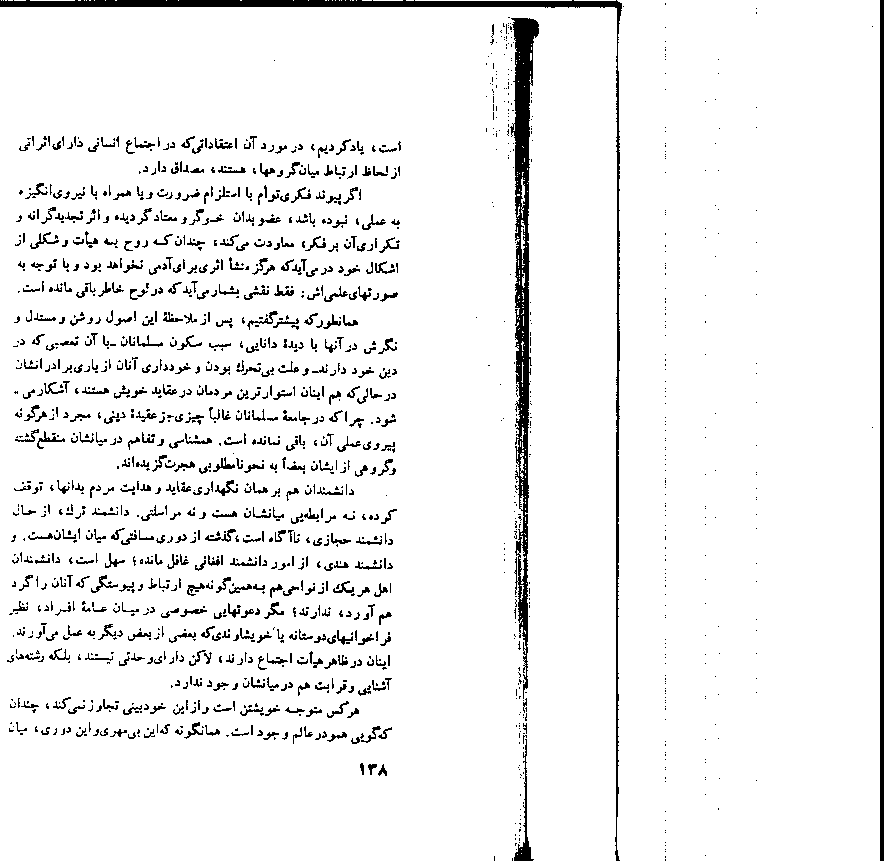 است، یادکردیم، در مورد آن اعتقاداتی‌که در اجتماع انسانی دارای‌اثراتی
از لحاظ ارتباط میان‌گروهها، هستند، مصداق دارد.
اگر پیوند فکری‌توأم با استلزام ضرورت و یا همراه با نیروی‌انگیزه
به عملی، نبوده باشد، عضو بدان خوگر و معتاد گردیده و اثر تجدیدگرانه و
تکراری‌آن بر فکر، معاودت می‌کند، چندان که روح به هیأت و شکلی از
اشکال خود در می‌آیدکه هرگز منشأ اثری‌برای‌آدمی نخواهد بود و با توجه به
صورتهای‌علمی‌اش: فقط نقشی بشمار می‌آید که در لوح خاطر باقی مانده است.
همانطورکه پیشتر‌گفتیم، پس از ملاحظهٔ این اصول روشن و مستدل و
نگرش در آنها با دیدهٔ دانایی، سبب سکون مسلمانان ـ با آن تعصبی‌که در
دین خود دارند ـ و علت بی‌تحرك بودن و خودداری آنان از یاری‌برادرانشان
در حالی‌که هم اینان استوارترین مردمان در عقاید خویش هستند، آشکار می‌ـ
شود. چرا که در جامعهٔ مسلمانان غالباً چیزی‌جز عقیدهٔ دینی، مجرد از هرگونه
پیروی‌عملی آن، باقی نمانده است. همشناسی و تفاهم در میانشان منقطع‌گشته
وگروهی از ایشان بعضاً به نحونامطلوبی هجرت‌گزیده‌اند.
دانشمندان هم بر همان نگهداری‌عقاید و هدایت مردم بدانها، توقف
کرده، نه مرابطه‌یی میانشان هست و نه مراسلتی. دانشمند ترك، از حال
دانشمند حجازی، ناآگاه است، گذشته از دوری مسافتی‌که میان ایشان‌هست. و
دانشمند هندی، از امور دانشمند افغانی غافل مانده؛ سهل است، دانشمندان
اهل هر یك از نواحی‌هم به‌همین‌گونه‌هیچ ارتباط و پیوستگی‌که آنان را گرد
هم آورد، ندارند؛ مگر دعوتهایی خصوصی در میان عامهٔ افراد، نظیر
فراخوانیهای‌دوستانه یا خویشاوندی‌که بعضی از بعض دیگر به عمل می‌آورند.
اینان در ظاهر هیأت اجتماع دارند، لاکن دارای‌وحدتی نیستند، بلکه رشته‌های
آشنایی وقرابت هم در میانشان وجود ندارد.
هرکس متوجه خویشتن است و از این خودبینی تجاوز نمی‌کند، چندان
که‌گویی همو در عالم وجود است. همانگونه که‌این بی‌مهری‌و این دوری، میان
۱۳۸